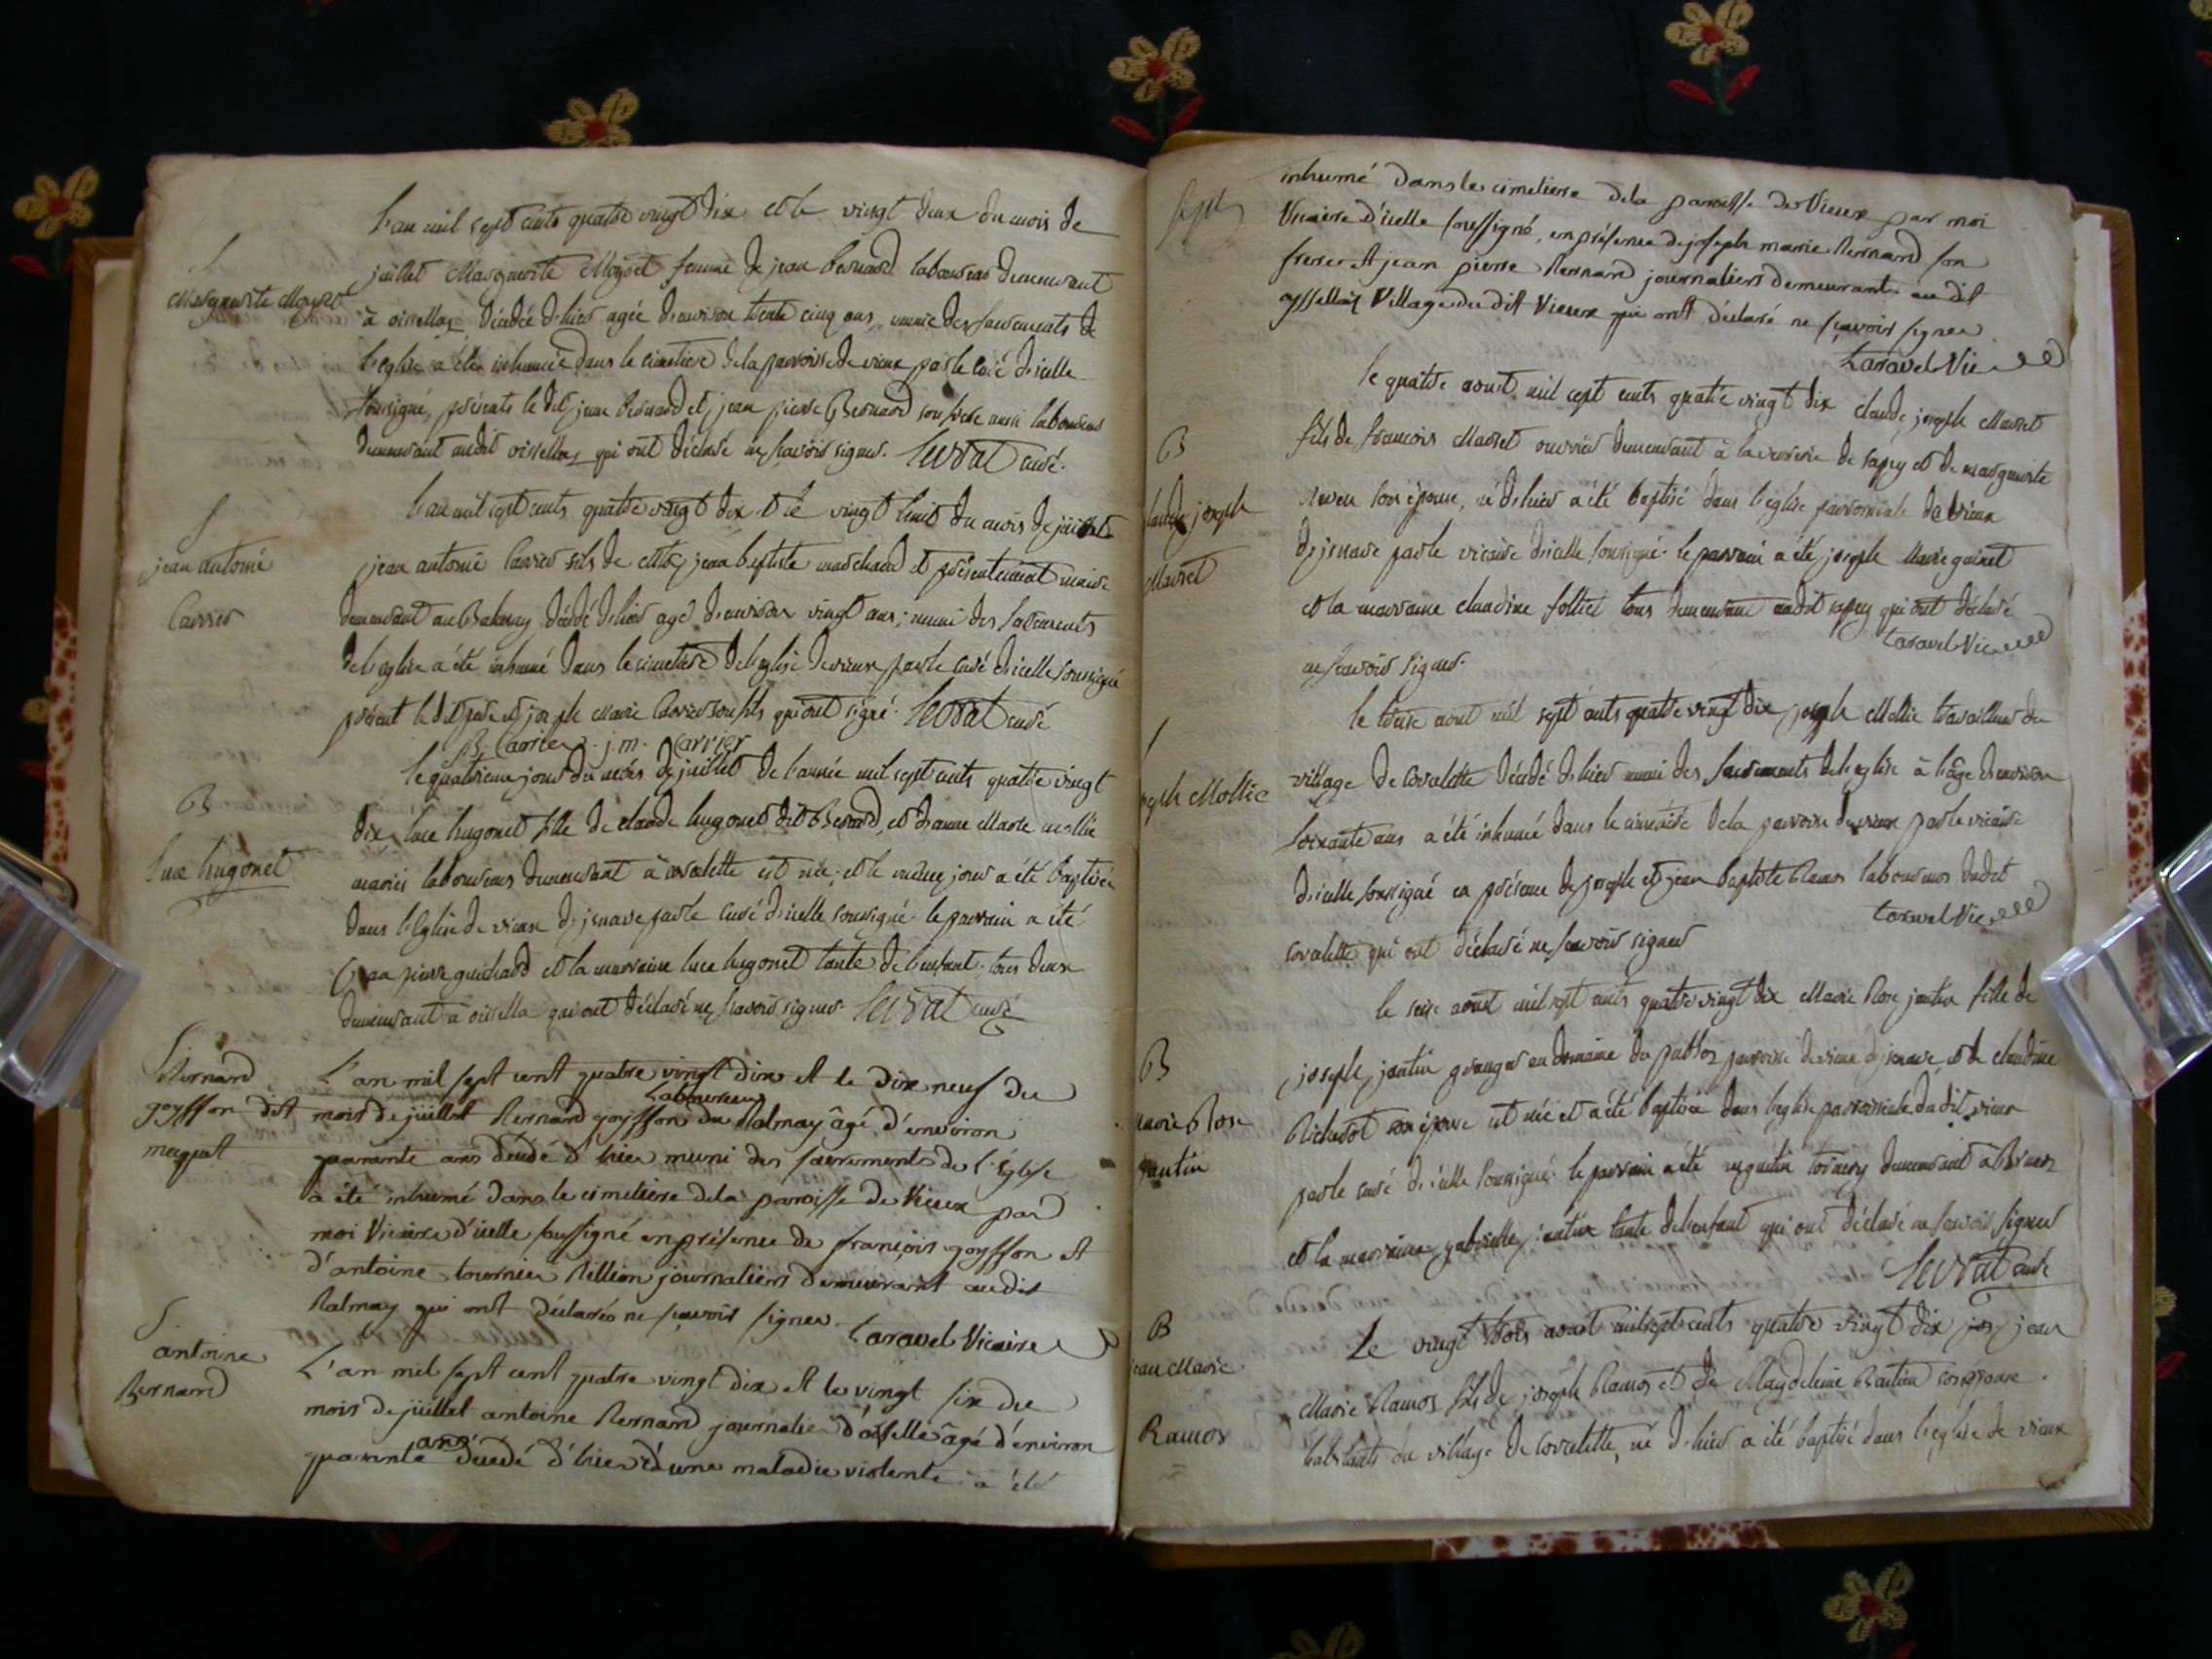 L'an mil sept cents quatre vingt dix et le vingt deux du mois de
Marguerite Moysset
juillet Marguerite Moysset femme de jean bernard laboureur demeurant
à oissellaz décédée d'hier agée d'environ trente cinq ans, munie des sacrements de
l'eglise a été inhumée dans le cimetiere de la paroisse de vieux par le curé d'icelle
soussigné, présents le dit jean bernard et jean pierre Bernard son frere aussi laboureur
demeurant audit oissellaz qui ont déclaré ne sçavoir signer. Levrat curé.
S
L'an mil sept cents quatre vingt dix et le vingt huit du mois de juillet
jean antoine
jean antoine Carrier fils de jean baptiste marchand et présentement maire
Carrier
demeurant au décédé d'hier agé d'environ vingt ans; muni des sacrements
de l'eglise a été inhumé dans le cimetiere de l'eglise de vieux par le curé d'icelle soussigné
présent le dit pere et joseph marie Carrier son fils qui ont signé. Levrat curé
B. Carrier. j. m. Carrier
le quatrieme jour du mois de juillet de l'année mil sept cents quatre vingt
B
dix, luce hugonet fille de claude hugonet dit Bernard, et d'anne Marie mollie
luce hugonet
mariés laboureurs demeurant à corcelette est née; et le même jour a été baptisée
dans l'Eglise de vieux d'jenave par le curé d'icelle soussigné. le parrain a été
jean pierre guichard et la marraine luce hugonet tante de l'enfant. tous deux
demeurant à oissella qui ont déclaré ne sçavoir signer. Levrat curé
S
Bernard
goyffon dit
L'an mil sept cent quatre vingt dix et le dix neuf du
Laboureur
mois de juillet Bernard goyffon du Balmay âgé d'environ
quarante ans décédé d'hier muni des sacrements de l'Église
a été inhumé dans le cimetiere de la paroisse de Vieux par
moi Vicaire d'icelle soussigné en présence de françois goyffon et
d'antoine tournier Billion journaliers demeurant audit
Balmay qui ont déclarés ne sçavoir signer. Taravel Vicaire
S
antoine
Bernard
L'an mil sept cent quatre vingt dix et le vingt six du
mois de juillet antoine Bernard journalier d'oisselle âgé d'environ
quarante ans décédé d'hier d'une maladie violente a été
inhumé dans le cimetiere de la paroisse de Vieux par moi
Vicaire d'icelle soussigné, en présence de joseph marie Bernard son
frere et jean pierre Bernard journaliers demeurant au dit
oyssellaz Village du dit Vieux qui ont déclaré ne sçavoir signer.
Taravel Vic
le quatre aout mil sept cents quatre vingt dix claude joseph Marret
B
fils de françois Marret ouvrier demeurant à la verrerie de sapey et de marguerite
claude joseph
son épouse, né d'hier a été baptisé dans l'eglise paroissiale de vieux
Marret
d'jenave par le vicaire d'icelle soussigné. le parrain a été joseph Marie
et la marraine claudine tous demeurant audit sapey qui ont déclaré
Taravel Vic
ne sçavoir signer.
le treise aout mil sept cents quatre vingt dix joseph Mollie travailleur du
joseph Mollie
village de Corcelette décédé d'hier muni des sacrements de l'eglise à l'âge d'environ
soixante ans a été inhumé dans le cimetiere de la paroisse de vieux par le vicaire
d'icelle soussigné en présence de joseph et jean baptiste Ramos laboureurs dudit
Taravel Vic
corcelette qui ont déclaré ne sçavoir signer
le seise aout mil sept cents quatre vingt dix Marie Rose jantin fille de
B
joseph jantin granger au domaine du paroisse de vieux d'jenave, et de claudine
marie Rose
son épouse est née et a été baptisée dans l'eglise paroissiale dudit vieux
jantin
par le curé d'icelle soussigné. le parrain a été demeurant à
et la marraine gabrielle jantin tante de l'enfant qui ont déclaré ne sçavoir signer
Levrat curé
B
Le vingt trois aout mil sept cents quatre vingt dix jean
jean Marie
Marie Ramos fils de joseph Ramos et de Magdeleine son épouse.
Ramos
habitants du village de Corcelette, né d'hier a été baptisé dans l'eglise de vieux